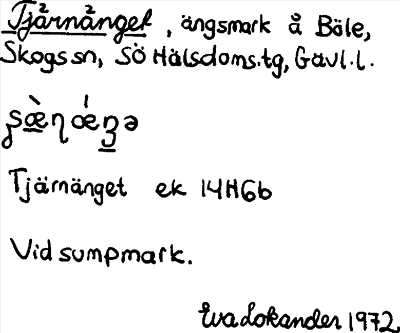 Tjärnänget, ängsmark å Böle,
Skogs sn, SÖ Hälsdoms.tg, Gävl.l.
Tjärnänget ek 14H6b
Vid sumpmark.
Eva Lokander 1972.